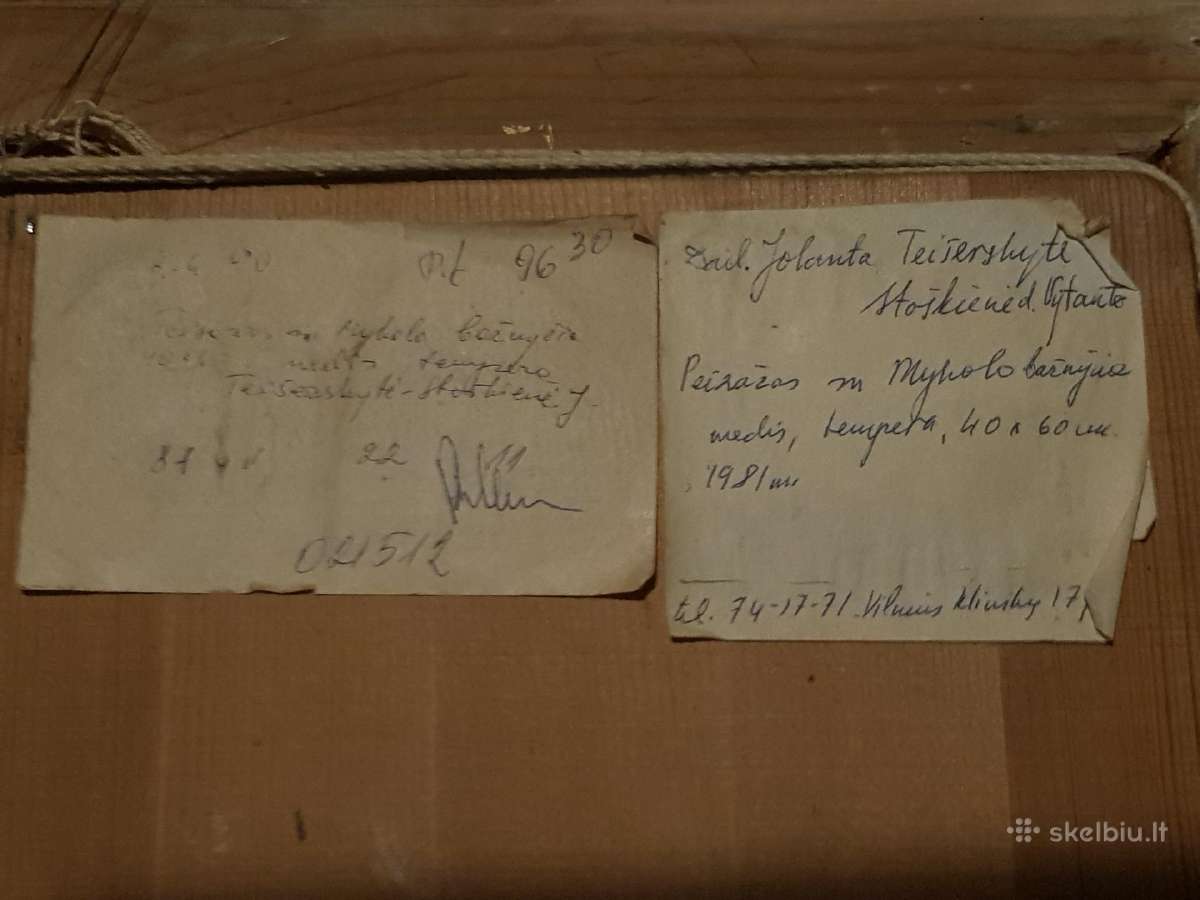 96 30
Peizažas su Mykolo bažnyčia
medis tempera
Teišerskytė-Stoškienė J.
81 22
021512
Dail. Jolanta Teišerskytė
Stoškienė d. Vytauto
Peizažas su Mykolo bažnyčia
medis, tempera, 40 x 60 cm.
1981 m
tel. 74-17-71 Vilnius 17,
skelbiu.lt